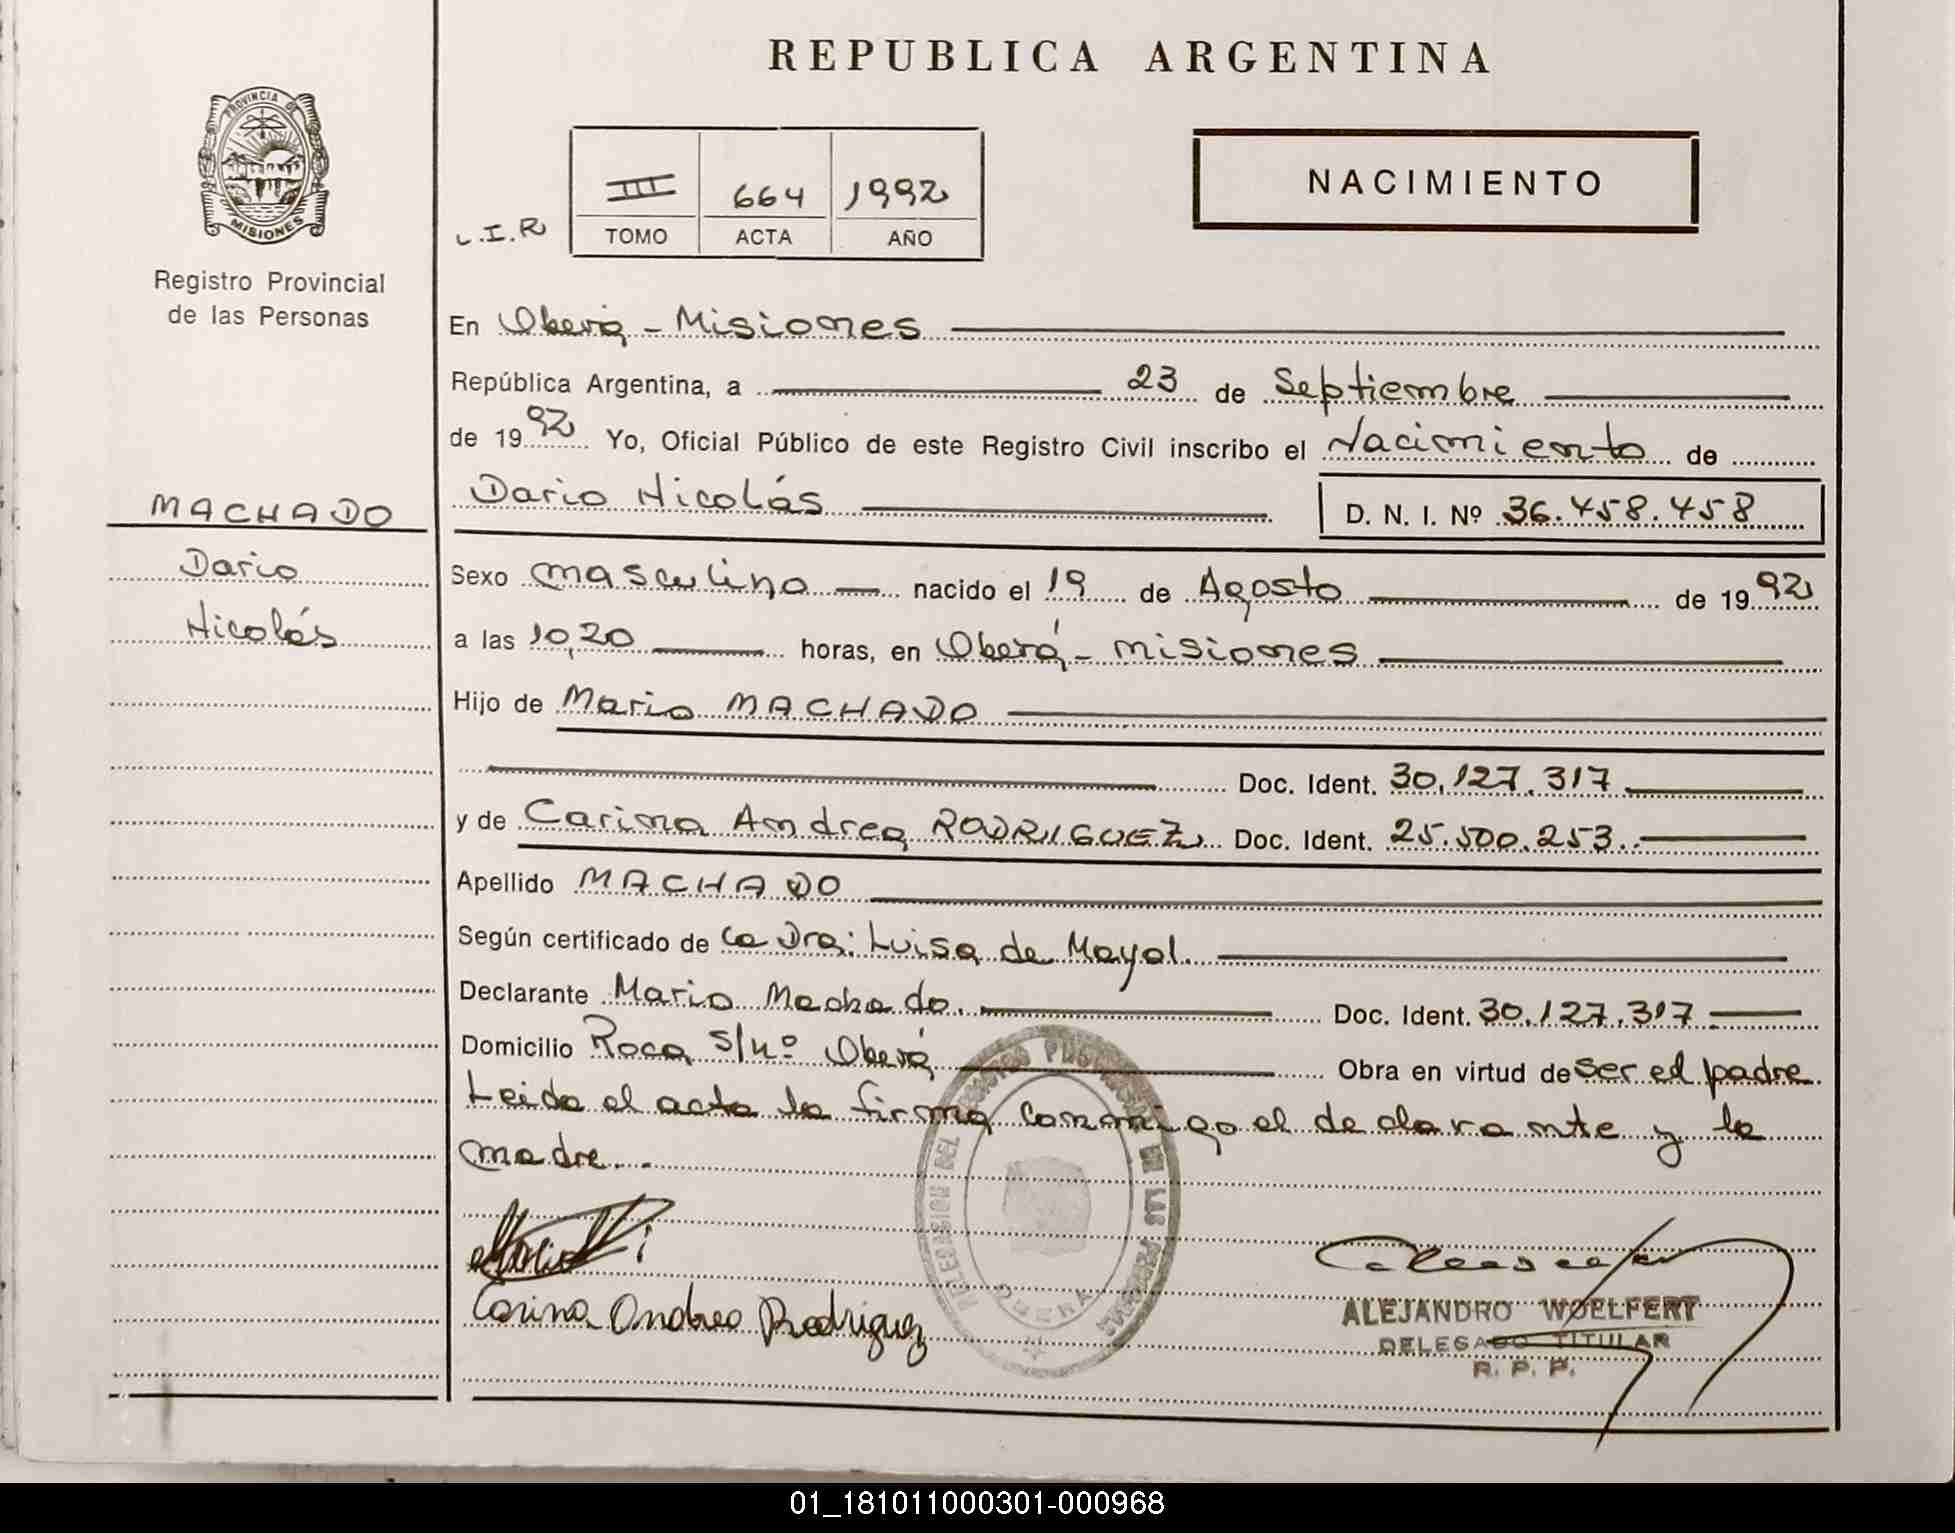 REPUBLICA ARGENTINA
PROVINCIA DE
MISIONES
Registro Provincial
de las Personas
L.I.R
III 664 1992
TOMO ACTA AÑO
NACIMIENTO
En Oberá - Misiones
República Argentina, a 23 de Septiembre
de 1992 Yo, Oficial Público de este Registro Civil inscribo el Nacimiento de
Dario Nicolás D. N. I. Nº 36.458.458
MACHADO
Dario
Nicolás
Sexo masculino nacido el 19 de Agosto de 1992
a las 10,20 horas, en Oberá - misiones
Hijo de Mario MACHADO
Doc. Ident. 30.127.317
y de Carina Andrea RODRIGUEZ Doc. Ident. 25.500.253.
Apellido MACHADO
Según certificado de la Dra: Luisa de Mayol.
Declarante Mario Machado. Doc. Ident. 30.127.317
Domicilio Roca s/nº Oberá Obra en virtud de ser el padre
Leida el acta la firma conmigo el declarante y la
madre.
Carina Andrea Rodriguez
DELEGACION DEL REGISTRO PROVINCIAL DE LAS PERSONAS
OBERA
ALEJANDRO WOELFERT
DELEGADO TITULAR
R. P. P.
01_181011000301-000968